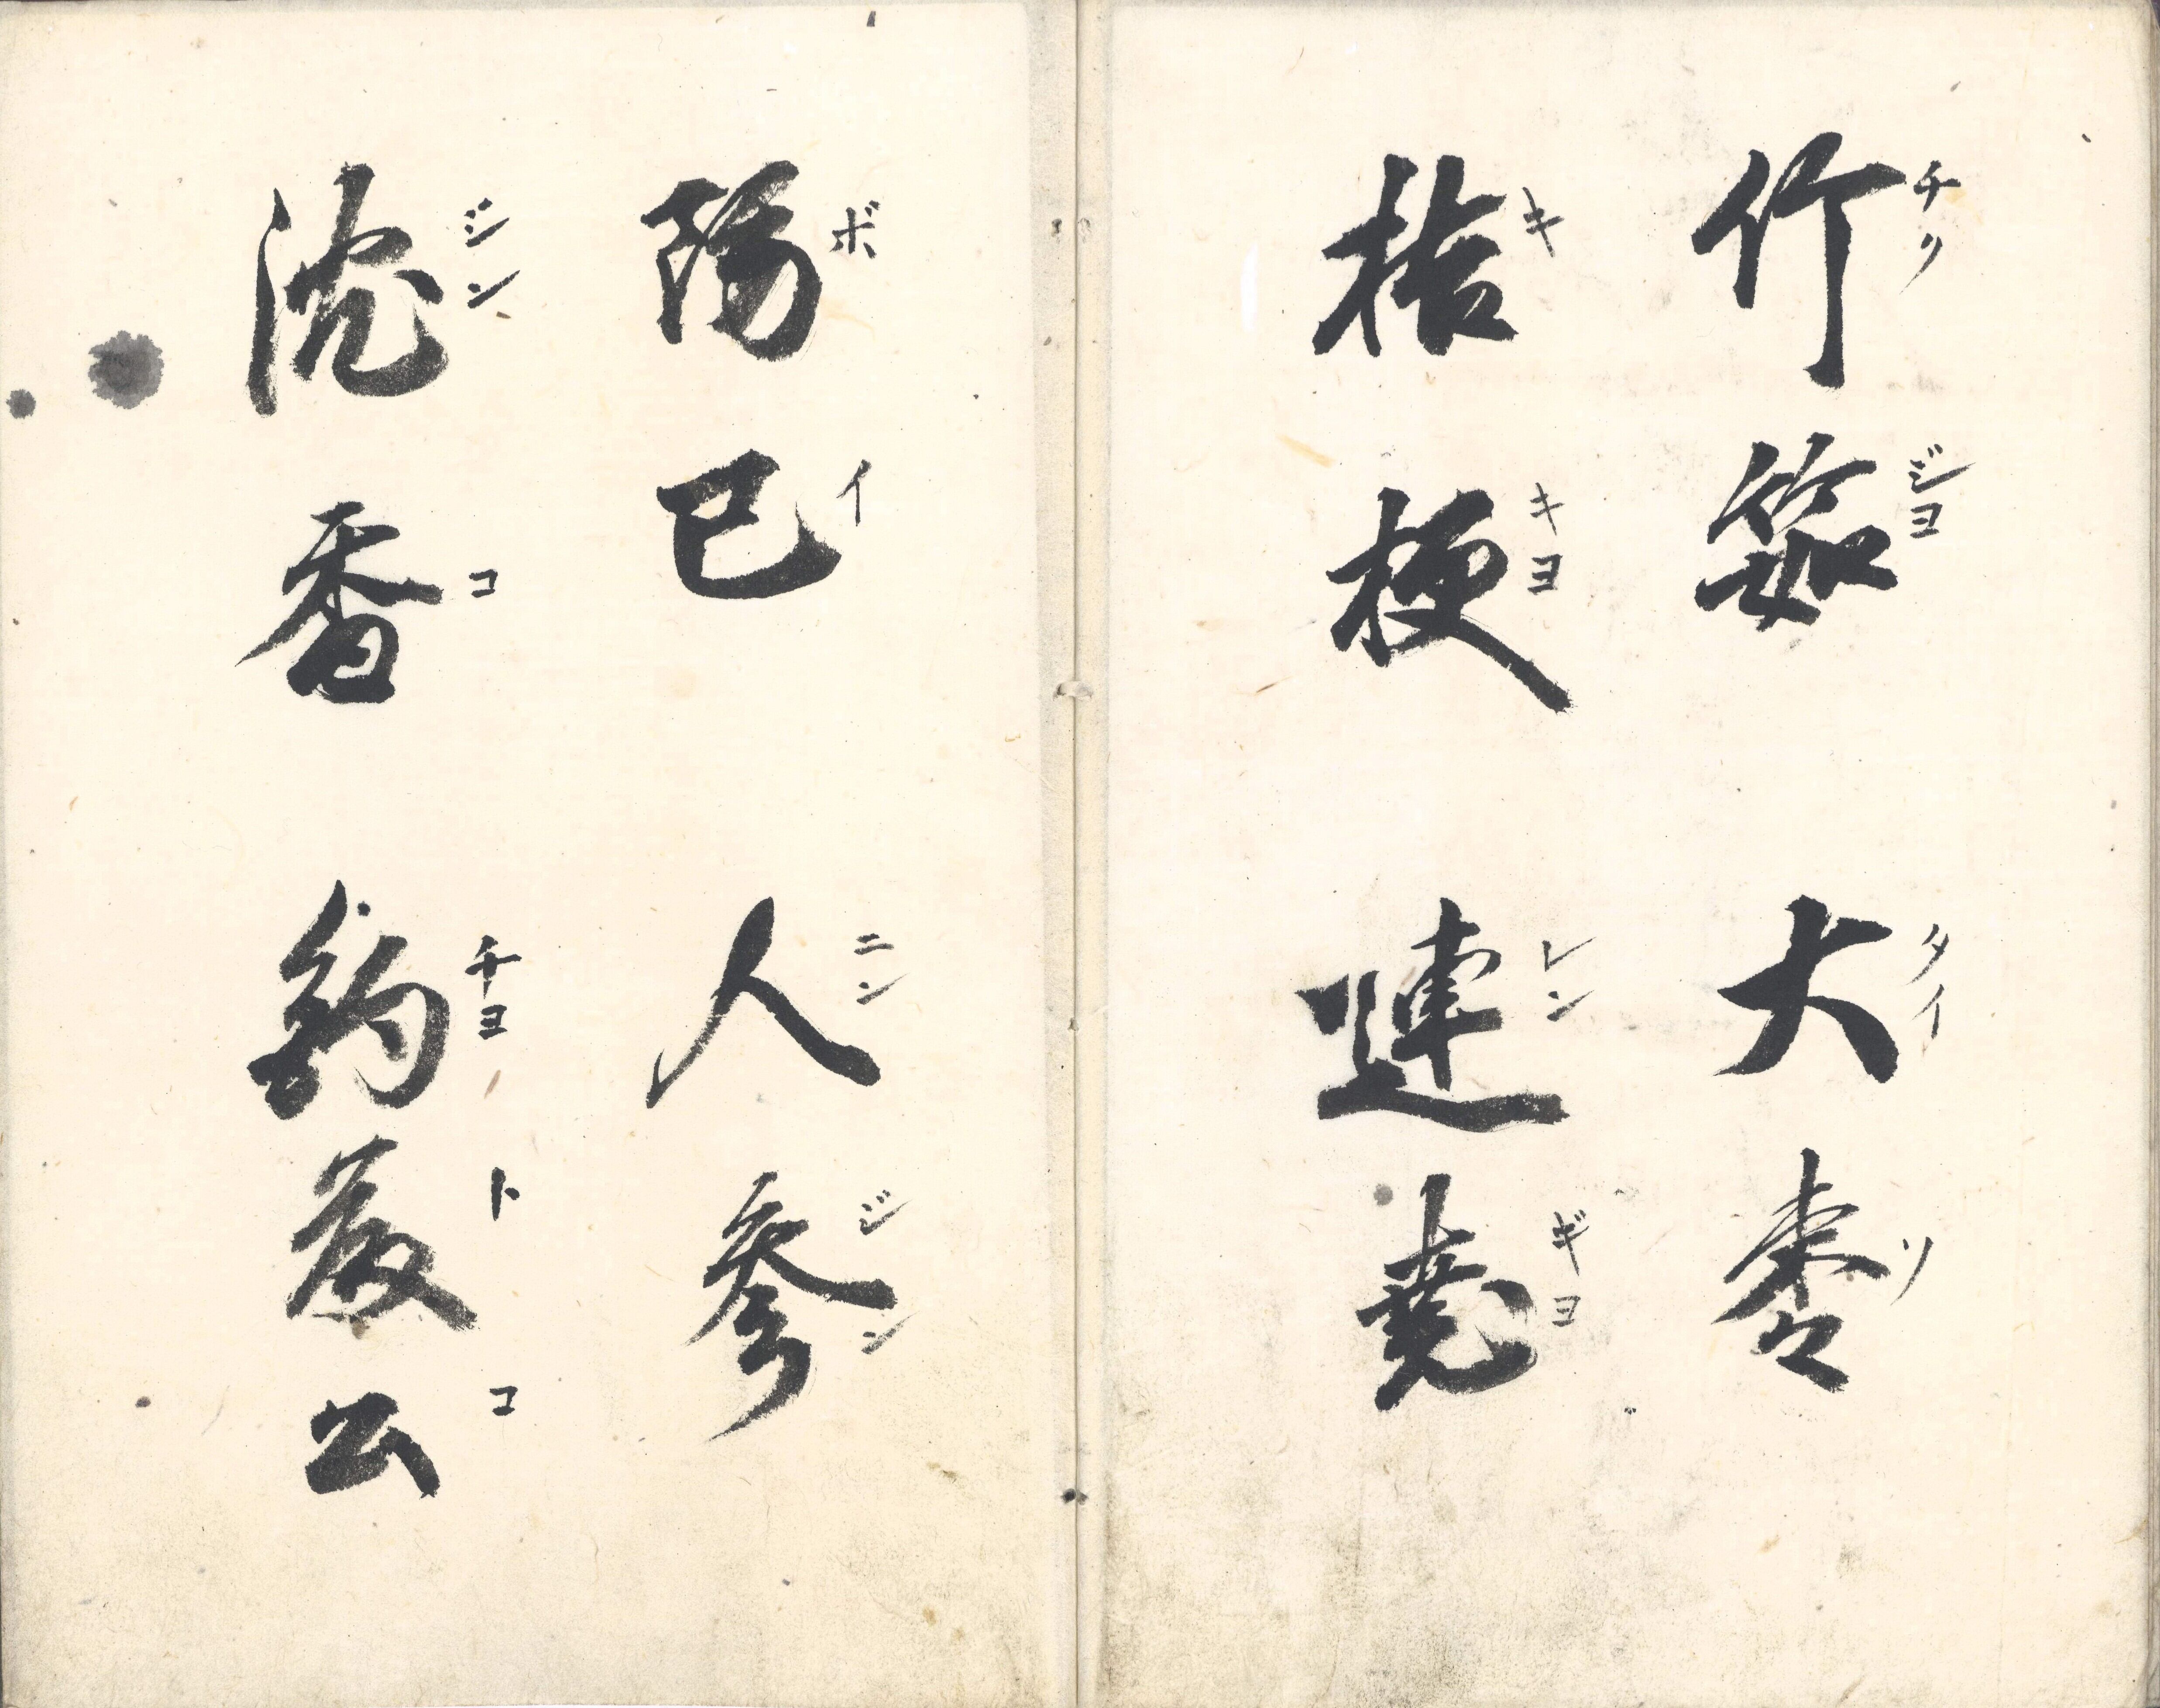 チク ジヨ タイ ソ
竹筎 大棗
キ キヨ レン ギヨ
桔梗 連堯
ボ イ ニン ジン
防已 人参
ジン コ チヨ ト コ
沈香 釣藤公